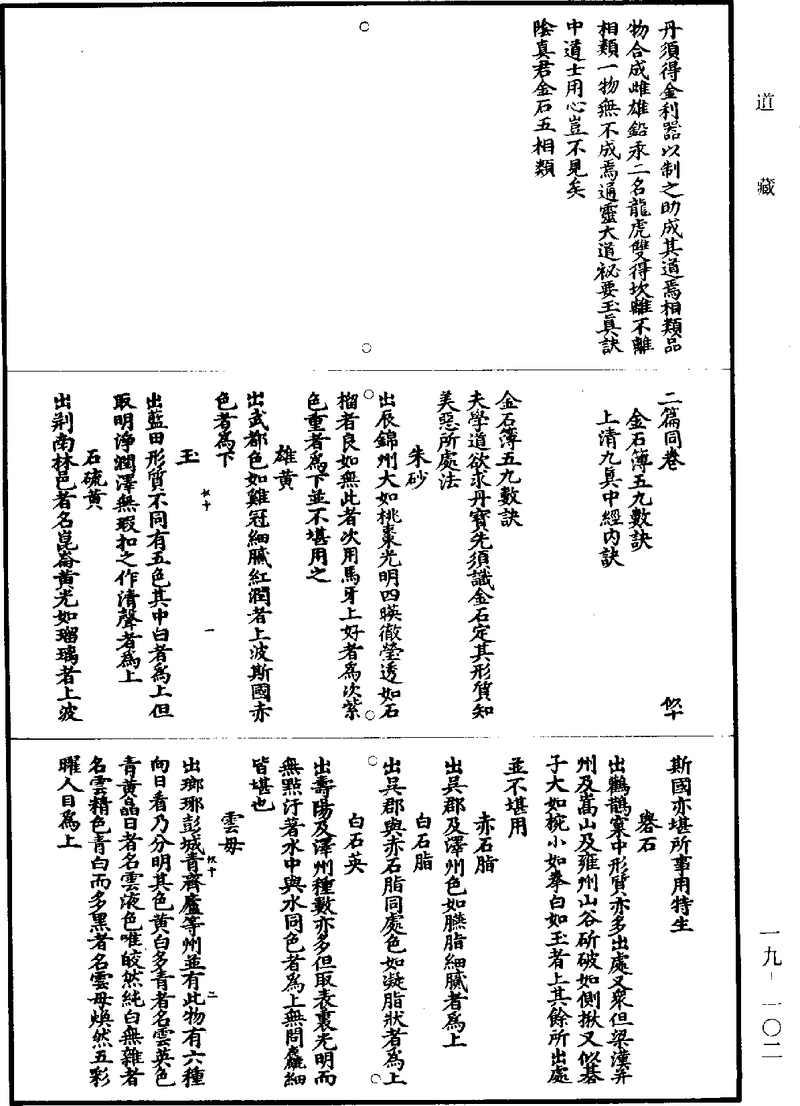 道藏
丹須得金利器以制之助成其道焉相類品
物合成雌雄鉛汞二名龍虎雙得坎離不離
相類一物無不成焉通靈大道祕要玉真訣
中道士用心豈不見矣
陰真君金石五相類
二篇同卷
金石薄五九數訣
上清九真中經內訣
似十
金石薄五九數訣
夫學道欲求丹寶先須識金石定其形質知
美惡所處法
朱砂
出辰錦州大如桃棗光明四暎徹瑩透如石
榴者良如無此者次用馬牙上好者為次紫
色重者為下並不堪用之
雄黄
出武都色如雞冠細膩紅潤者上波斯國赤
色者為下
似十
一
玉
出藍田形質不同有五色其中白者為上但
取明淨潤澤無瑕扣之作清聲者為上
石硫黄
出荆南林邑者名崑崙黄光如瑠璃者上波
斯國亦堪所事用特生
礜石
出鸛鵲窠中形質亦多出處又衆但梁漢并
州及嵩山及雍州山谷斫破如側揪又似碁
子大如椀小如拳白如玉者上其餘所出處
並不堪用
赤石脂
出吴郡及澤州色如臙脂細膩者為上
白石脂
出吴郡與赤石脂同處色如凝脂狀者為上
白石英
出壽陽及澤州種數亦多但取表裏光明而
無點汙著水中與水同色者為上無問麄細
皆堪也
雲母
似十
二
出瑯琊彭城青齊廬等州並有此物有六種
向日看乃分明其色黄白多青者名雲英色
青黄皛白者名雲液色唯皎然純白無雜者
名雲精色青白而多黑者名雲母煥然五彩
曜人目為上
一九－一〇二